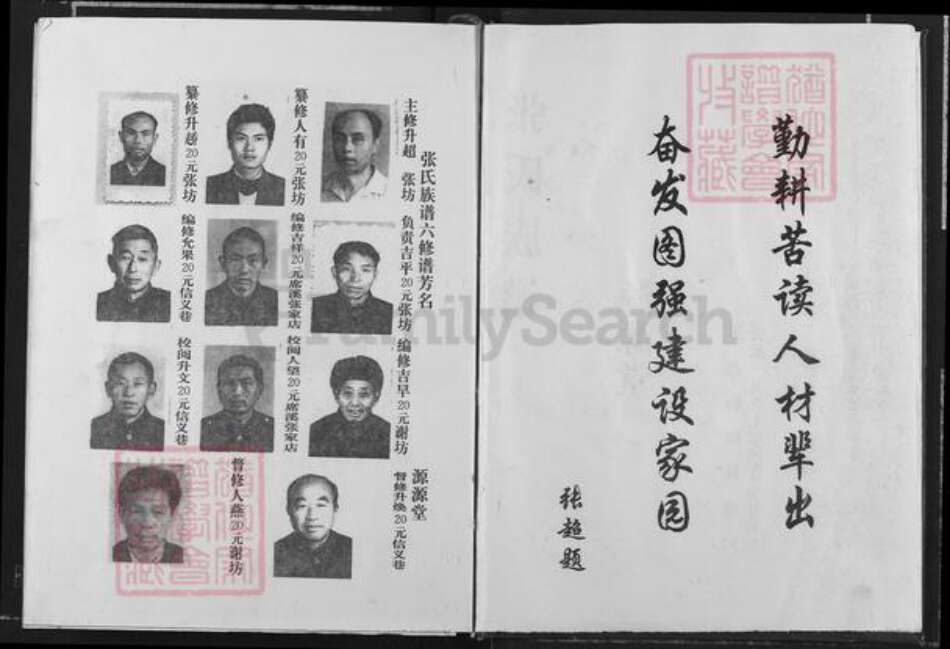 勤耕苦读人材辈出
奋发图强建设家园
张超题
张氏族谱六修谱芳名
主修升超 张坊
负责吉平20元张坊
编修吉早20元谢坊
源源堂
督修升焕20元信义巷
纂修人有20元张坊
编修吉样20元席溪张家店
校阅人望20元席溪张家店
督修人燕20元谢坊
纂修升越20元张坊
编修允果20元信义巷
校阅升文20元信义巷
FamilySearch